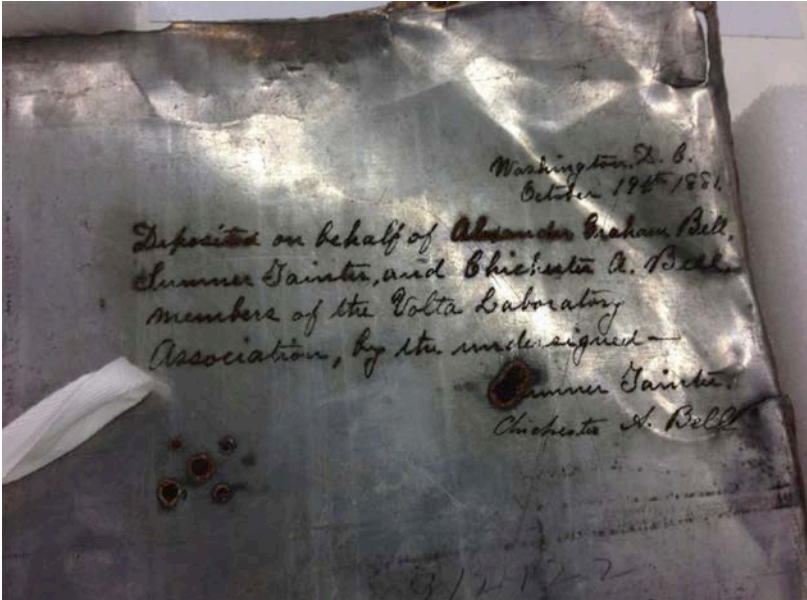 Washington, D. C.
October 19th 1881.
Deposited on behalf of Alexander Graham Bell,
Sumner Tainter, and Chichester A. Bell,
members of the Volta Laboratory
Association, by the undersigned—
Sumner Tainter.
Chichester A. Bell